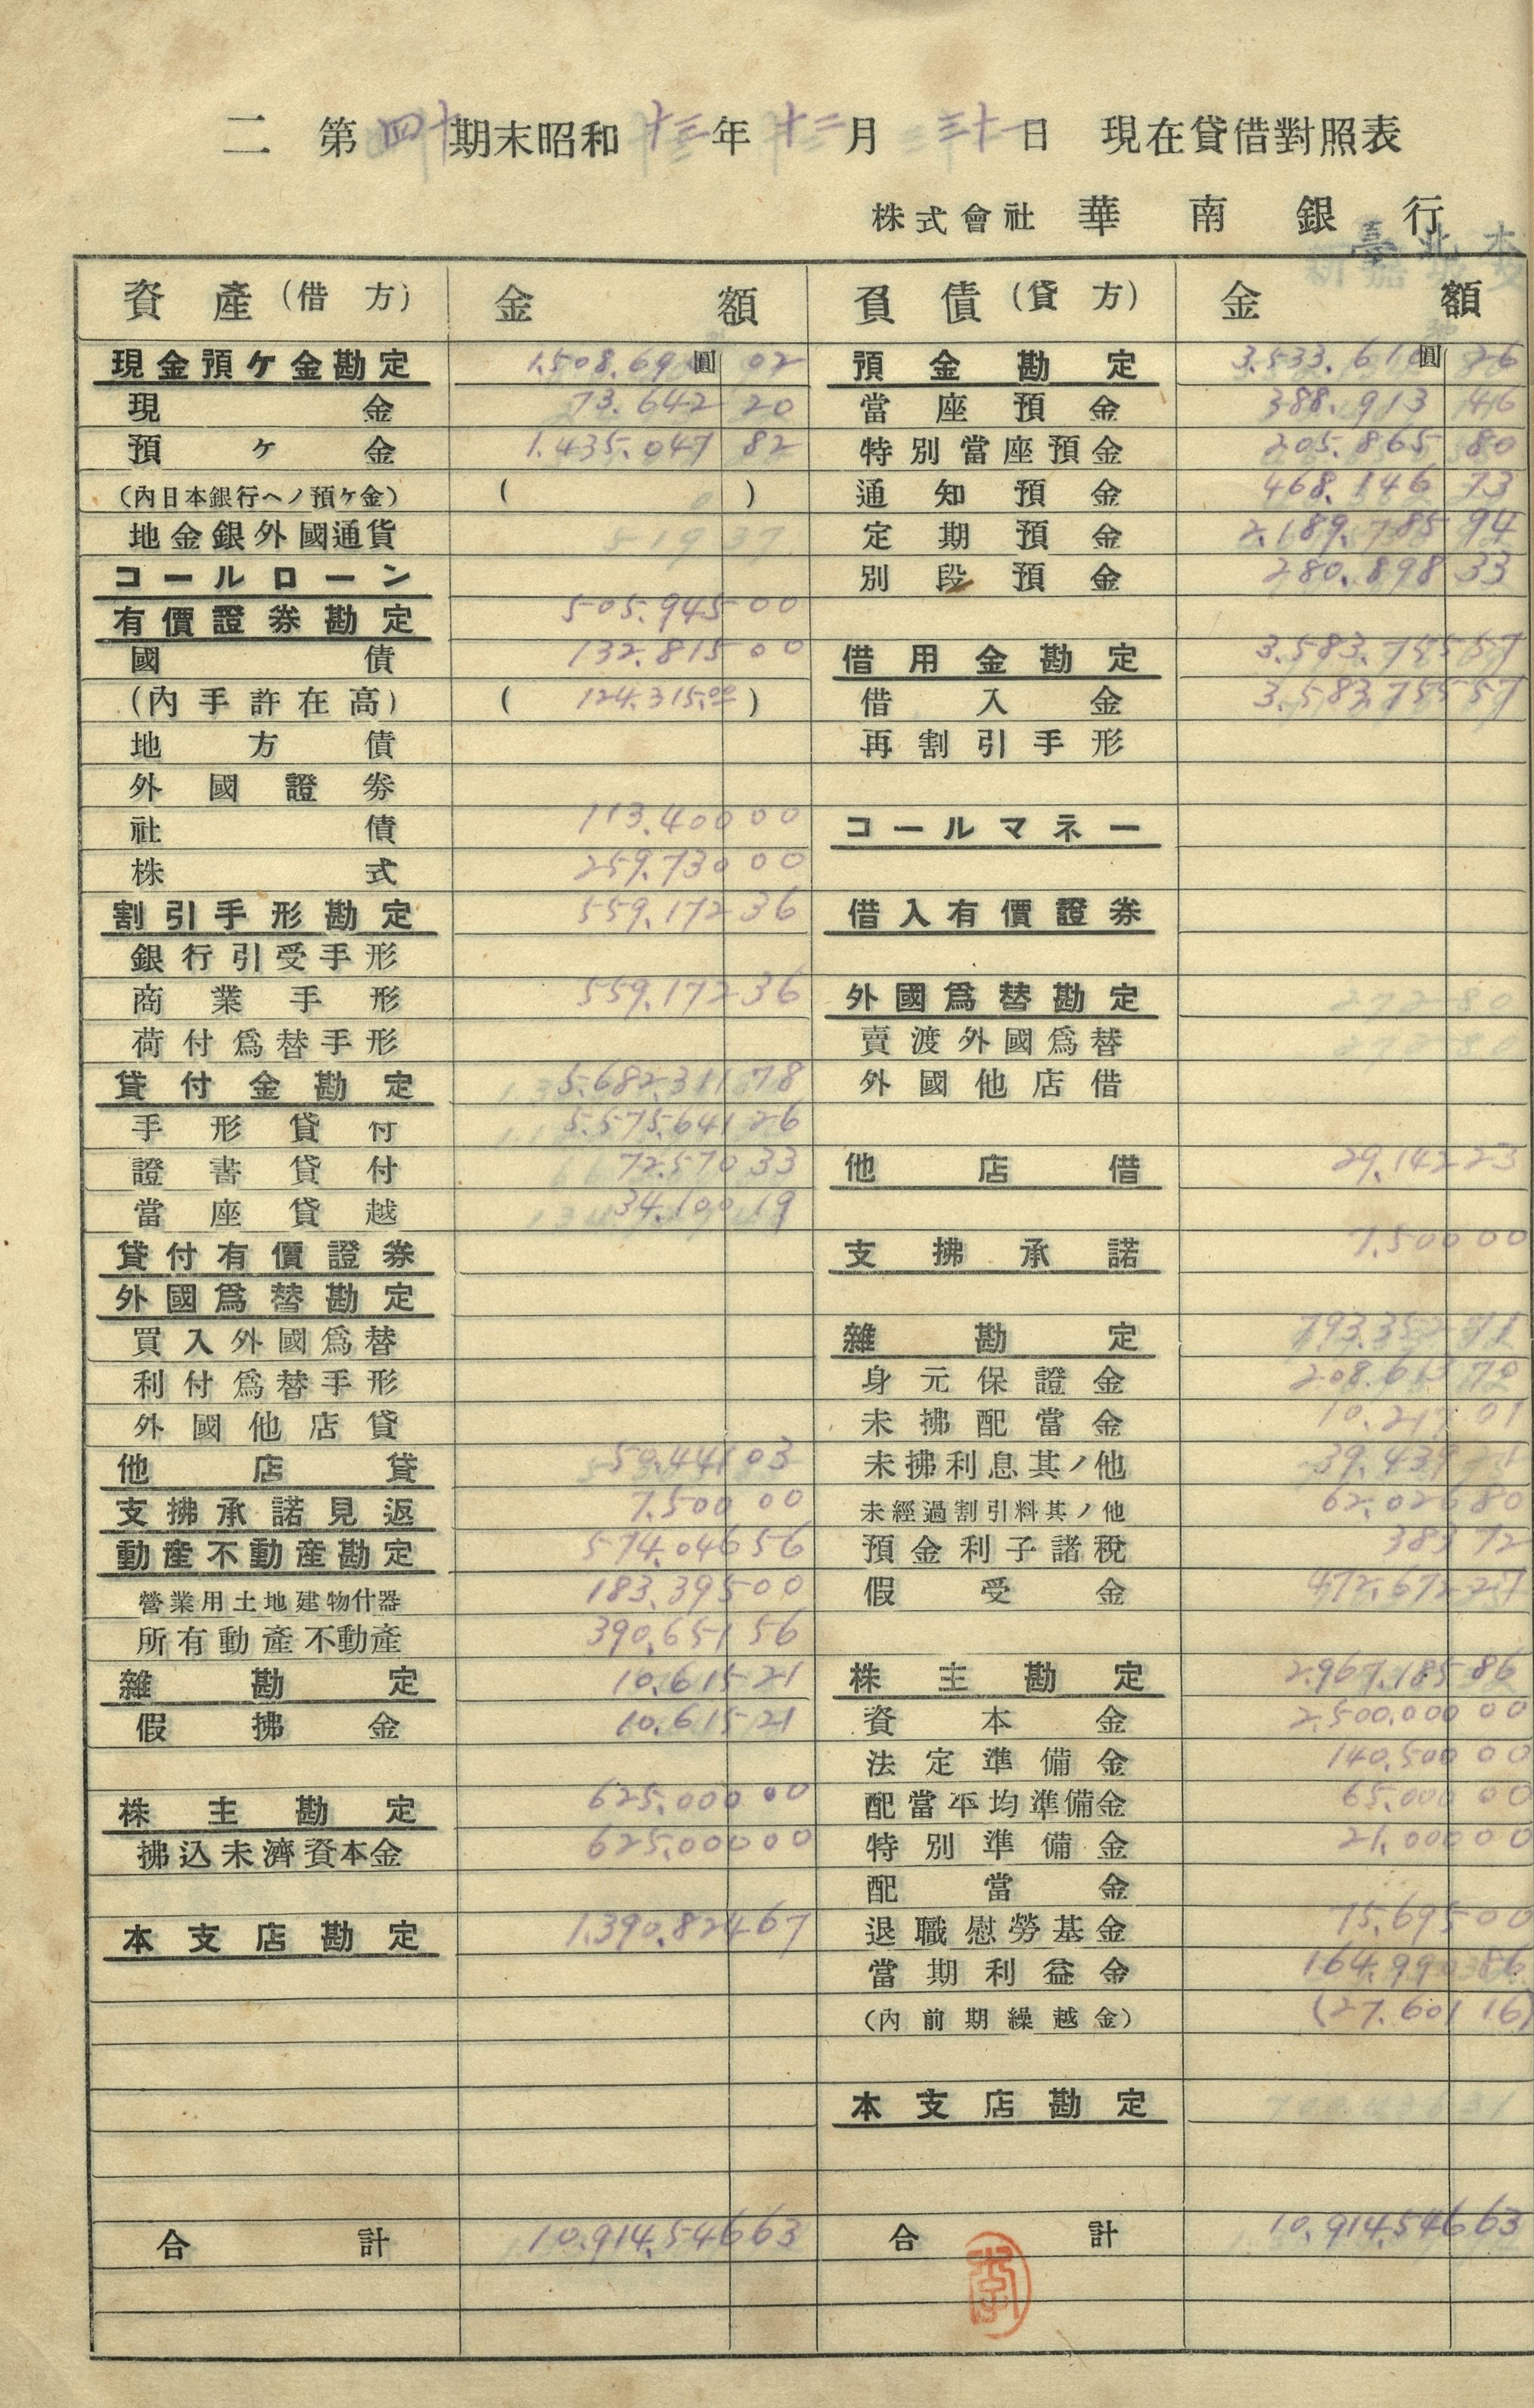 二 第四十期末昭和十三年十二月三十一日 現在貸借對照表
株式會社 華南銀行
臺北本
資產(借方) 金額 負債(貸方) 金額
現金預ケ金勘定 1.508.690圓02 預金勘定 3.533.610圓26
現金 73.642 20 當座預金 388.913 46
預ケ金 1.435.047 82 特別當座預金 205.865 80
(內日本銀行ヘノ預ケ金) ( ) 通知預金 468.146 73
地金銀外國通貨 定期預金 2.189.785 94
コールローン 別段預金 280.898 33
有價證券勘定 505.945 00
國債 132.815 00 借用金勘定 3.583.755 57
(內手許在高) (124.315.00) 借入金 3.583.755 57
地方債 再割引手形
外國證券
社債 113.400 00 コールマネー
株式 259.730 00
割引手形勘定 559.172 36 借入有價證券
銀行引受手形
商業手形 559.172 36 外國爲替勘定
荷付爲替手形 賣渡外國爲替
貸付金勘定 5.682.311 78 外國他店借
手形貸付 5.575.641 26
證書貸付 72.570 33 他店借 29.142 23
當座貸越 34.100 19
貸付有價證券 支拂承諾 7.500 00
外國爲替勘定
買入外國爲替 雜勘定 793.352 71
利付爲替手形 身元保證金 208.613 70
外國他店貸 未拂配當金 10.217 01
他店貸 50.441 03 未拂利息其ノ他 39.439 21
支拂承諾見返 7.500 00 未經過割引料其ノ他 62.026 80
動產不動產勘定 574.046 56 預金利子諸稅 383 72
營業用土地建物什器 183.395 00 假受金 472.672 27
所有動產不動產 390.651 56
雜勘定 10.615 21 株主勘定 2.967.185 86
假拂金 10.615 21 資本金 2.500.000 00
法定準備金 140.500 00
株主勘定 625.000 00 配當平均準備金 65.000 00
拂込未濟資本金 625.000 00 特別準備金 21.000 00
配當金
本支店勘定 1.390.824 67 退職慰勞基金 75.695 00
當期利益金 164.990 86
(內前期繰越金) (27.601 16)
本支店勘定
合計 10.914.546 63 合計 10.914.546 63